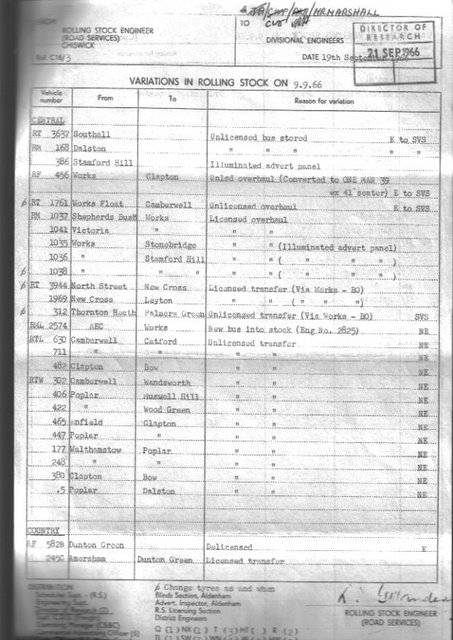 FROM
ROLLING STOCK ENGINEER
(ROAD SERVICES)
CHISWICK
Ref. C16/3
MR MARSHALL
TO
DIVISIONAL ENGINEERS
DATE 19th September
DIRECTOR OF
RESEARCH
21 SEP 1966
VARIATIONS IN ROLLING STOCK ON 9.9.66
Vehicle number From To Reason for variation
CENTRAL
RT 3637 Southall Unlicensed bus stored E to SVS
RM 168 Dalston " " " " "
386 Stamford Hill Illuminated advert panel
RF 456 Works Clapton Unlcd overhaul (Converted to ONE MAN 39
ex 41 seater) E to SVS
RT 1761 Works Float Camberwell Unlicensed overhaul E to SVS
RM 1037 Shepherds Bush Works Licensed overhaul
1041 Victoria " " "
1035 Works Stonebridge " " (Illuminated advert panel)
1036 " Stamford Hill " " ( " " " )
1038 " " " " " ( " " " )
RT 3944 North Street New Cross Licensed transfer (Via Works - BO)
1969 New Cross Leyton " " ( " " " )
312 Thornton Heath Palmers Green Unlicensed transfer (Via Works - BO) SVS
RML 2574 AEC Works New bus into stock (Eng No. 2825) NE
RTL 630 Camberwell Catford Unlicensed transfer NE
711 " " " " NE
482 Clapton Bow " " NE
RTW 302 Camberwell Wandsworth " " NE
406 Poplar Muswell Hill " " NE
422 " Wood Green " " NE
465 Enfield Clapton " " NE
447 Poplar " " " NE
177 Walthamstow Poplar " " NE
248 " " " " NE
380 Clapton Bow " " NE
5 Poplar Dalston " " NE
COUNTRY
RF 582B Dunton Green Delicensed E
245C Amersham Dunton Green Licensed transfer
DISTRIBUTION
Change tyres as and when
Blinds Section, Aldenham
Advert. Inspector, Aldenham
R.S. Licensing Section
District Engineers
ROLLING STOCK ENGINEER
(ROAD SERVICES)